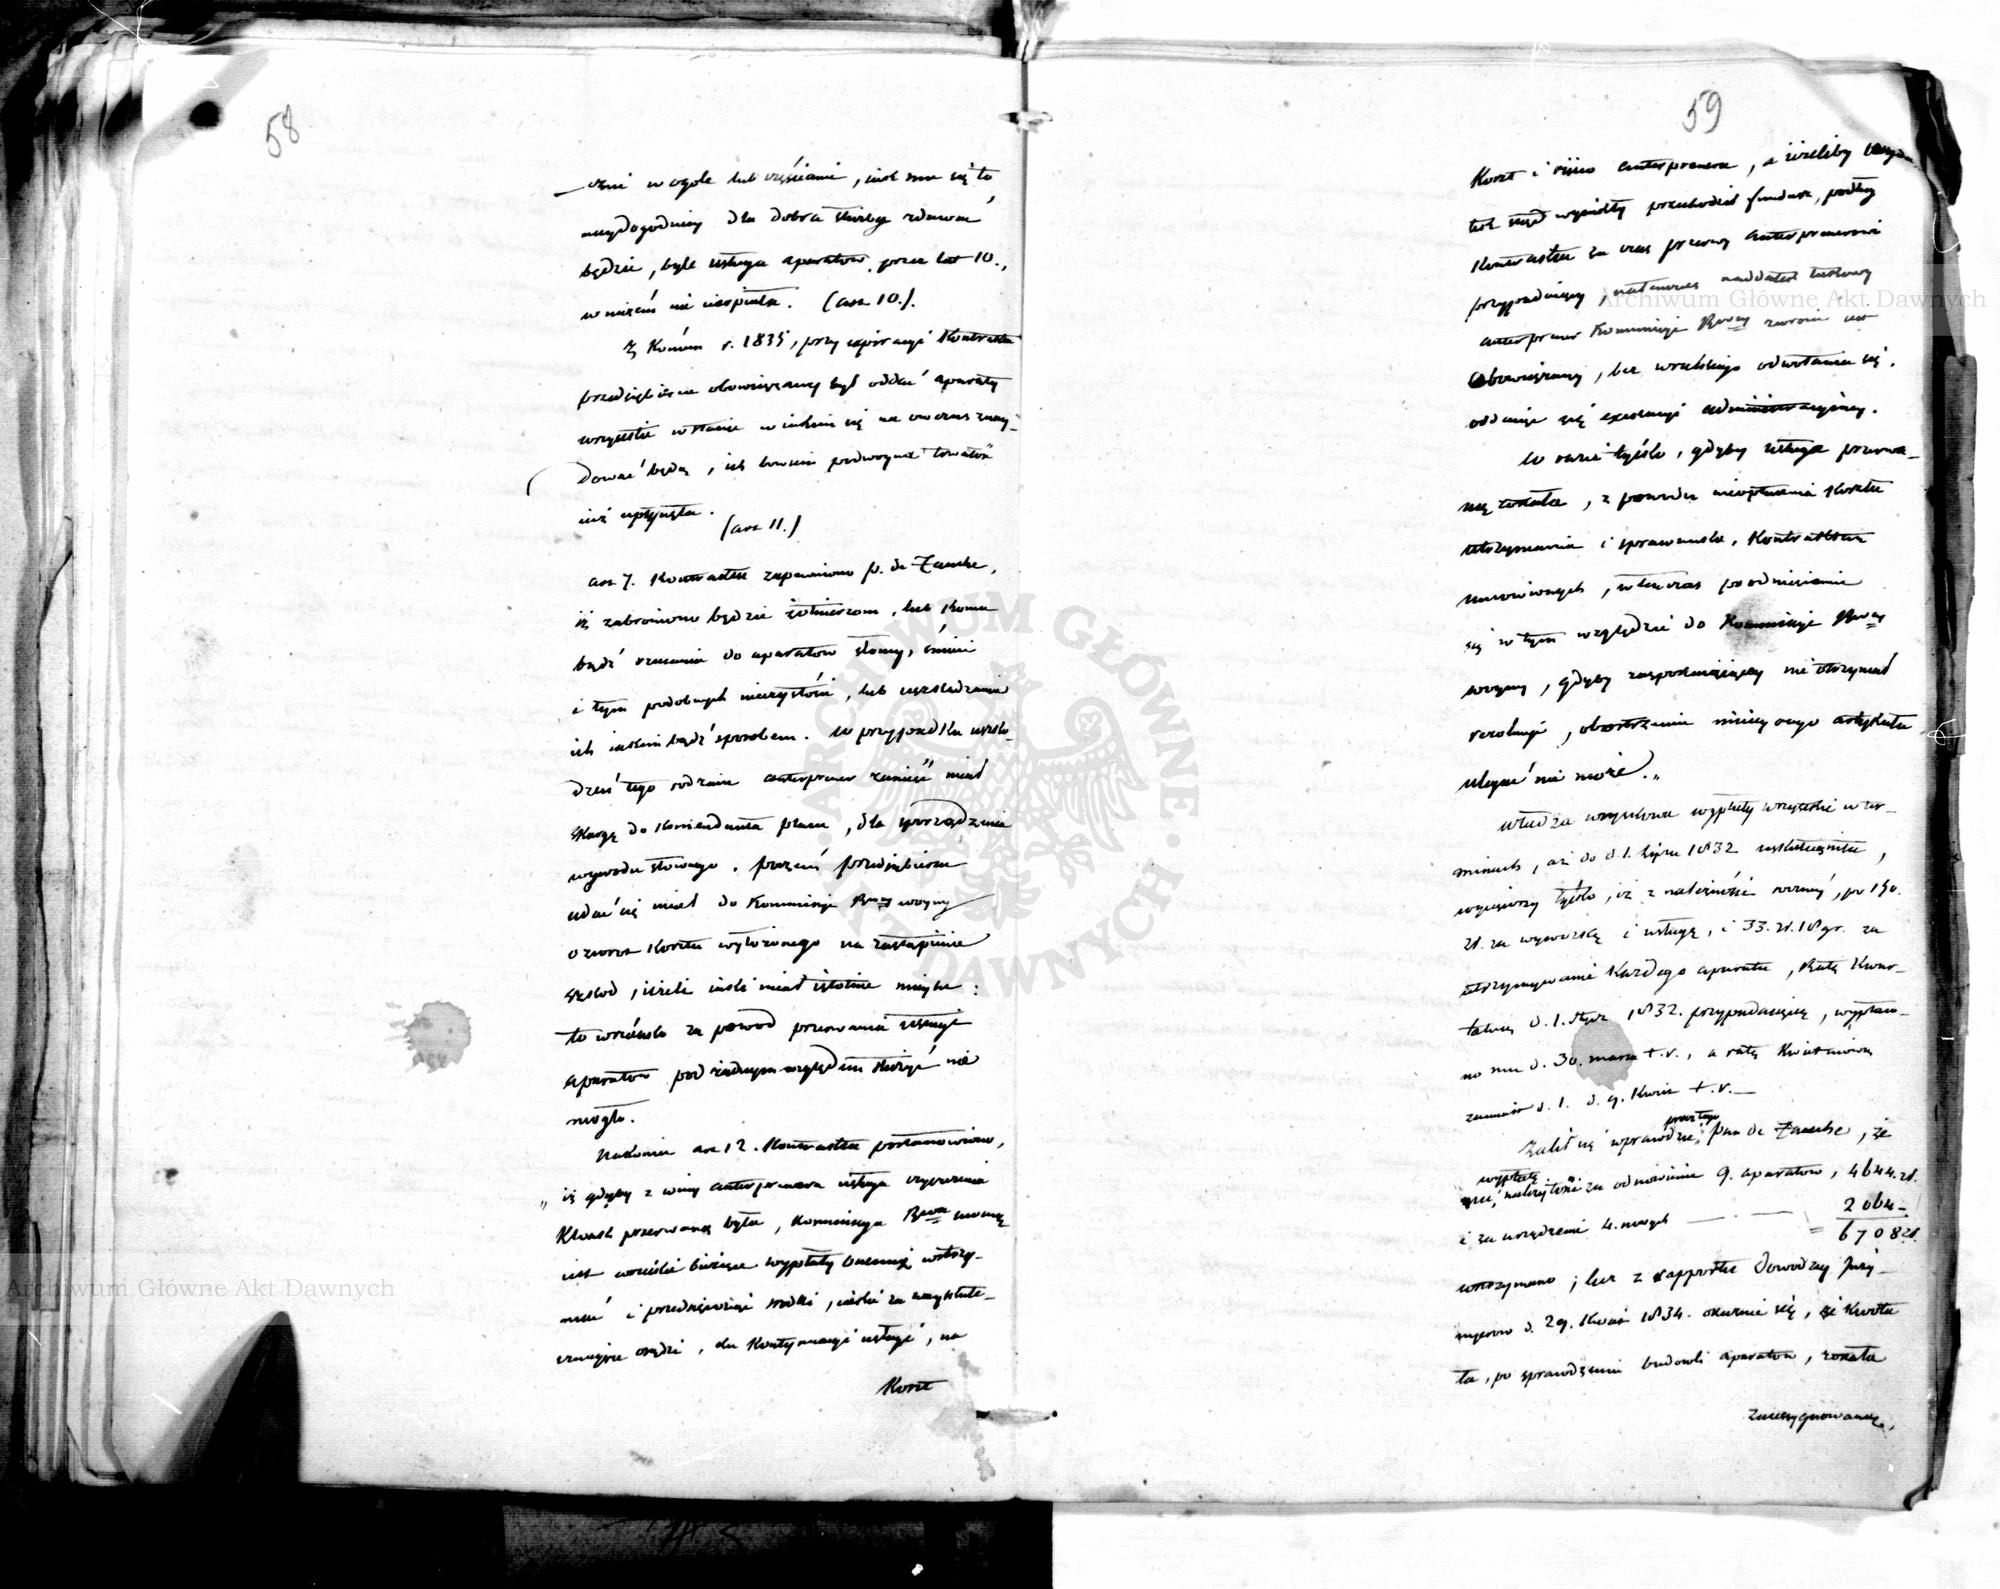 58
czni w ogóle lub częściami, jak mu się to
najdogodniej dla dobra służby zdawać
będzie, byle usługa aparatów przez lat 10.,
w niczém nie cierpiała. (art 10.).
Z Końcem r. 1835, przy expiracyi Kontraktu
przedsiębierca obowiązany był oddać aparaty
wszystkie w stanie w jakim się na owczas znaj-
dować będą, ich bowiem podwoyna
już upłynęła.
(art 11.)
art 7. Kontraktu zapewniono p. de Zamke,
iż zabroniono będzie żołnierzom, lub komu
bądź rzucania do aparatów słomy, śmieci
i tym podobnych nieczystości, lub uszkodzania
ich jakim bądź sposobem. W przypadku uszko-
dzeń tego rodzaju anterprener zanieść miał
skargę do Komendanta placu, dla sporządzenia
wywodu słownego. poczém przedsiębierca
udać się miał do Kommissyi Rwey wojny
o zwrot kosztu wyłożonego na zastąpienie
szkod, jeżeli jakie miał istotnie mieysce:
to wszakże za powod przerwania usługi
aparatów pod żadnym względem służyć nie
mogło.
Nakoniec art 12. Kontraktu postanowiono,
„iż gdyby z winy anterprenera usługa czyszczenia
Kloak przerwaną była, Kommissya Rwa mocną
jest wszelkie bieżące wypłaty onemuż wstrzy-
mać i przedsięwziąć srodki, jakie za nayskute-
cznieysze osądzi, do Kontynuacyi usługi, na
Koszt
59
Koszt i risico anterprenera, a jeżeliby
toż ztąd wynikły przechodził fundusz, podług
Kontraktu za czas przerwy anterprenerowi
przypadający, natenczas naddatek takowy
anterprener Kommissyi Rwey zwrócić jest
obowiązany, bez wszelkiego odwołania się,
oddając się exekucyi administracyjney.
W razie tylko, gdyby usługa przerwa-
ną została, z powodu nieopłacenia kosztu
utrzymania i sprawunku, Kontraktem
umówionych, wtenczas po odniesieniu
się w tym względzie do Kommissyi Rwey
wojny, gdyby zaspokajający nie otrzymał
rezolucyi, obostrzeniu niniejszego artykułu
ulegać nie może.„
Władza wojskowa wypłaty wszystkie w ter-
minach, aż do d. 1. lipca 1832 uskuteczniła,
wyjąwszy tylko, iż z należności roczney, po 150.
zł. za wywózkę i usługę, i 33. zł. 10 gr. za
utrzymywanie każdego aparatu, Ratę Kwar-
talną d. 1. Stycz 1832. przypadającą, wypłaco-
no mu d. 30. marca t. r., a ratę Kwietniową
zamiast d. 1. d. 9. Kwiet t. r. —
Żalił się wprawdzie przeztego Pan de Zamke, że
mu, wypłatę należytości za odnowienie 9. aparatów, 4644. zł.
i za urządzenie 4. nowych — . — 2064 –
= 6708 zł.
wstrzymano; lecz z rapportu Dowodzcy Inży-
nierów d. 29. Kwiet 1834. okazuie się, że Kwota
ta, po sprawdzeniu budowli aparatów, została
zaassygnowaną,
Archiwum Główne Akt Dawnych
Archiwum Główne Akt Dawnych
ARCHIWUM GŁÓWNE AKT DAWNYCH